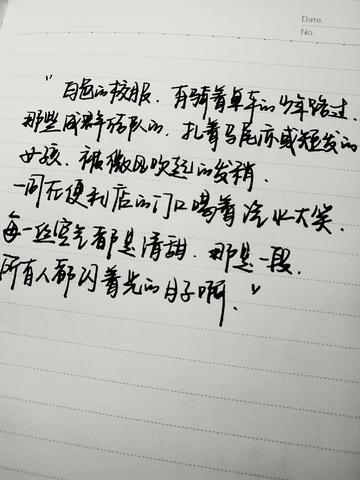 Date.
No.
"白色的校服，有骑着单车的少年路过，
那些成群结队的，扎着马尾亦或短发的
女孩，被微风吹起的发梢，
一同在便利店的门口喝着汽水大笑，
每一丝空气都是清甜，那是一段，
所有人都闪着光的日子啊。"